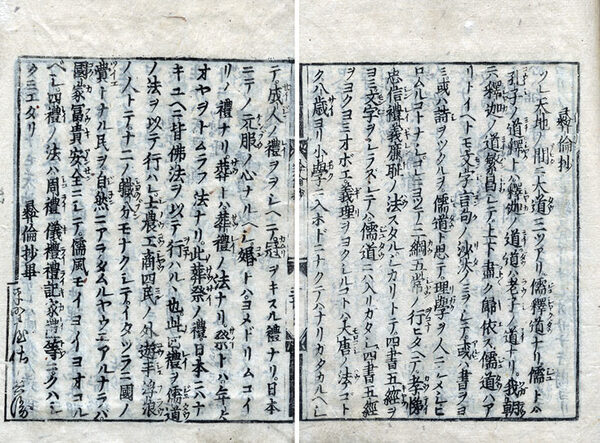 彜倫抄
ソレ天地ノ間ニ大道三ツアリ儒釋道ナリ儒トハ
孔子ノ道釋トハ釋迦ノ道道ハ老子ノ道ナリ我朝
ニハ釋迦ノ道繁昌シテ上下盡ク歸依ス儒道ハア
リトイヘトモ文字言句ノ沙汰ノミヲシテ或ハ書ヲヨ
ミ或ハ詩ヲツクルヲ儒道ト思テ理學ヲ人ニシメシヒ
ロムルコトナシ
忠信禮義廉耻ノ法スタル
ヨミ文字ヲシラズシテハ儒道ニハ入リカタシ四書五經
ヲヨクヨミオボエ義理ヲヨクシルコトハ大唐ノ法コト
ク八歳ヨリ小學ニ入ホドニナクテハナリカタカルヘシ
テ成人ノ禮ヲヲシヘテ冠ヲキスル禮ナリ日本
ニテノ元服ノ心ナルヘシ婚トハヨメドリムコイ
リノ禮ナリ葬トハ葬禮ノ法ナリ祭トハ年ヒ
オヤヲトムラフ法ナリ此葬祭ノ禮日本ニハナ
キユヘニ甘佛法ヲ以テ行
ノ法ヲ以テ行ハレ士農工商四民ノ外遊手浮浪
ノストテナニノ職分モナクシテイタツラニ國ノ
費トナル民ヲ自然ニアラタムルヤウニアルナラハ
國家冨貴安全ニシテ儒風モイヨイヨオコル
ベシ四禮ノ法ハ周禮儀禮禮記家禮等ニクハシ
クミエタリ
彜倫抄畢